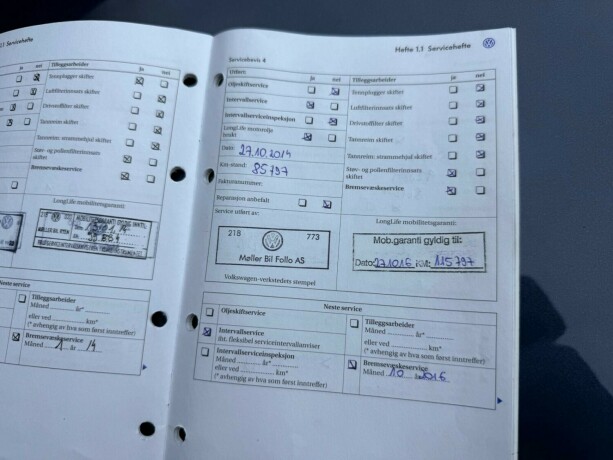 1.1 Servicehefte
Tilleggsarbeider
ja nei
Tennplugger skiftet
Luftfilterinnsats skiftet
Drivstoffilter skiftet
Tannreim skiftet
Tannreim: strammehjul skiftet
Støv- og pollenfilterinnsats
skiftet
Bremsevæskeservice
LongLife mobilitetsgaranti:
Neste service
Tilleggsarbeider
Måned år*
eller ved km*
(* avhengig av hva som først inntreffer)
Bremsevæskeservice
Måned 1 år 14
Hefte 1.1 Servicehefte
Servicebevis 4
Utført:
ja nei
Oljeskiftservice
Intervallservice
Intervallserviceinspeksjon
LongLife motorolje
brukt
Dato: 27.10.2014
Km-stand: 85797
Fakturanummer:
Reparasjon anbefalt
Service utført av:
218 773
Møller Bil Follo AS
Volkswagen-verkstedets stempel
Tilleggsarbeider
ja nei
Tennplugger skiftet
Luftfilterinnsats skiftet
Drivstoffilter skiftet
Tannreim skiftet
Tannreim: strammehjul skiftet
Støv- og pollenfilterinnsats
skiftet
Bremsevæskeservice
LongLife mobilitetsgaranti:
Mob.garanti gyldig til:
Dato: 271016 KM: 115797
Neste service
Oljeskiftservice
Intervallservice
iht. fleksibel serviceintervallanviser
Intervallserviceinspeksjon
Måned år*
eller ved km*
(* avhengig av hva som først inntreffer)
Tilleggsarbeider
Måned år*
eller ved km*
(* avhengig av hva som først inntreffer)
Bremsevæskeservice
Måned 10 år 2016